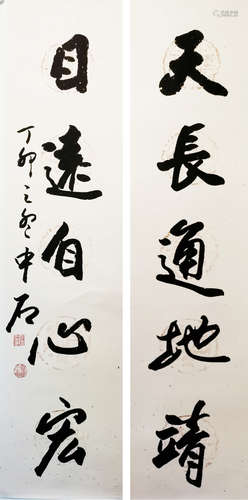 天長通地靖
目遠自心宏
丁卯之冬中石